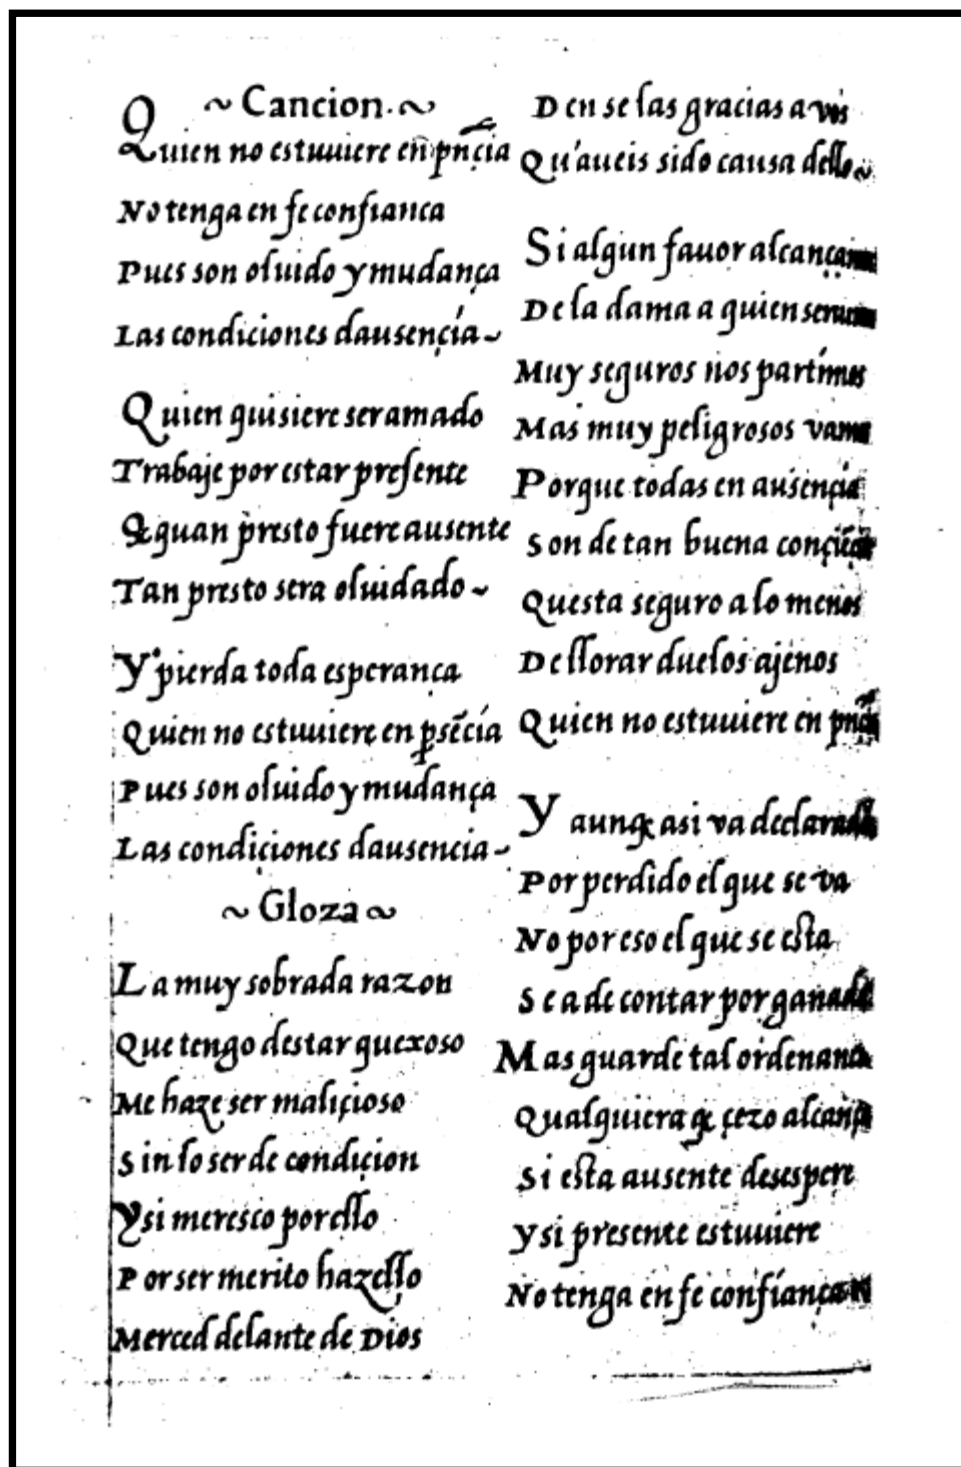 ~ Cancion. ~
Quien no estuuiere en pñçia
No tenga en fe confianca
Pues son oluido y mudança
Las condiciones dausençia ~
Quien quisiere ser amado
Trabaje por estar presente
Q̃ quan presto fuere ausente
Tan presto sera oluidado ~
Y pierda toda esperança
Quien no estuuiere en psẽcia
Pues son oluido y mudança
Las condiçiones dausencia ~
~ Gloza ~
La muy sobrada razon
Que tengo destar quexoso
Me haze ser maliçioso
Sin lo ser de condiçion
Y si meresco por ello
Por ser merito hazello
Merced delante de Dios
Den se las gracias a vos
Qu'aueis sido causa dello ~
Si algun fauor alcançamos
De la dama a quien seruimos
Muy seguros nos partimos
Mas muy peligrosos vamos
Porque todas en ausençia
Son de tan buena
Questa seguro a lo menos
De llorar duelos ajenos
Quien no estuuiere en pñçia
Y aunq̃ asi va declarado
Por perdido el que se va
No por eso el que se esta
Se a de contar por ganado
Mas guarde tal ordenança
Qualquiera q̃ çezo alcança
Si esta ausente desespere
Y si presente estuuiere
No tenga en fe confiança